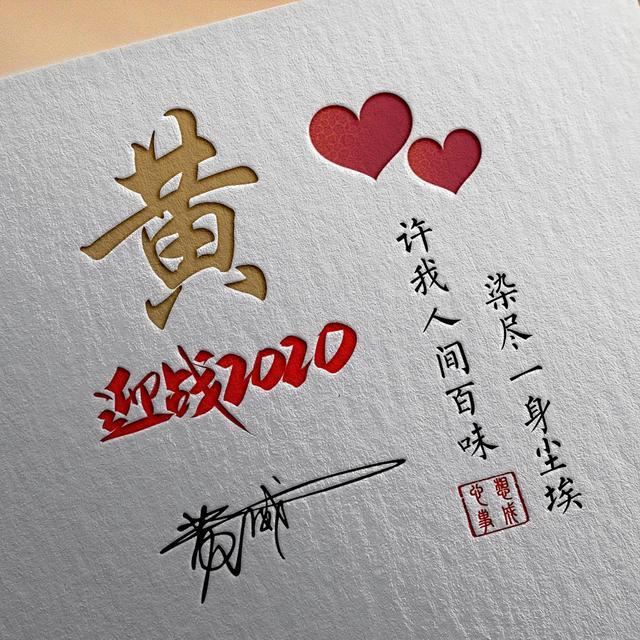 黄
迎战2020
黄威
许我人间百味
染尽一身尘埃
心想
事成